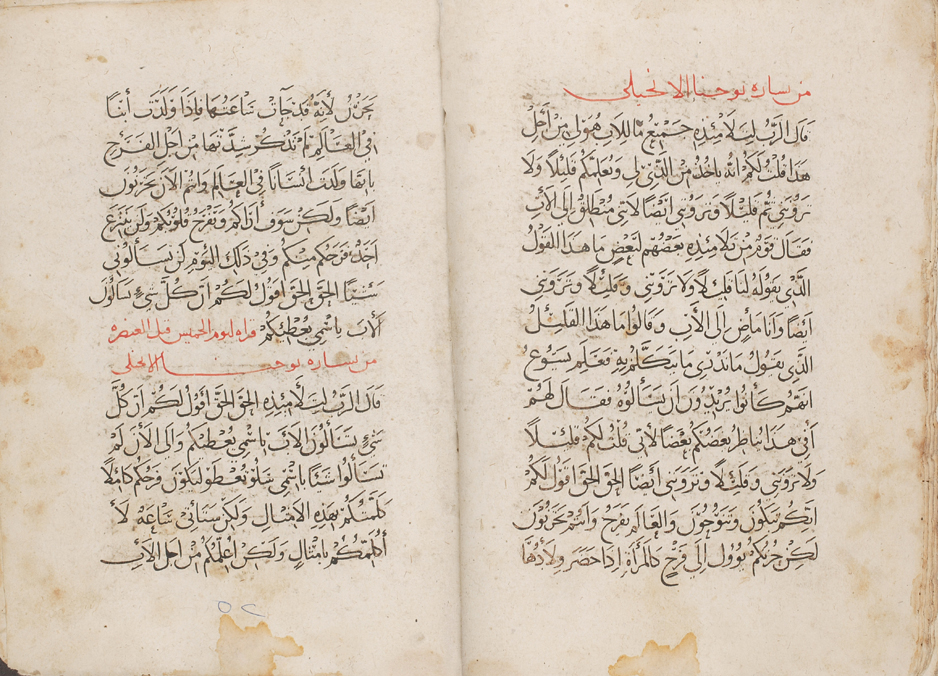 من بشاره يوحنا الانجيلي
قال الرب لتلاميذه جميع ما للاب هو لي من اجل
هذا قلت لكم انه ياخذ من الذي لي ويعلمكم قليلا ولا
تروني ثم قليلا وتروني ايضا لاني منطلق الى الاب
فقال قوم من تلاميذه بعضهم لبعض ما هذا القول
الذي يقوله لنا قليلا ولا تروني وقليلا وتروني
ايضا وانا ماض الى الاب وقالوا ما هذا القليل
الذي يقول ما ندري ما يتكلم به فعلم يسوع
انهم كانوا يريدون ان يسالوه فقال لهم
افي هذا يناظر بعضكم بعضا لاني قلت لكم قليلا
ولا تروني وقليلا وتروني ايضا الحق الحق اقول لكم
انكم تبكون وتنوحون والعالم يفرح وانتم تحزنون
لكن حزنكم يوول الى فرح كالمراة اذا حضر ولادها
تحزن لانه قد جات ساعتها فاذا ولدت ابنا
في العالم لم تذكر شدتها من اجل الفرح
بانها ولدت انسانا في العالم وانتم الان تحزنون
ايضا ولكن سوف اراكم وتفرح قلوبكم ولن ينزع
احد فرحكم منكم وفي ذلك اليوم لن تسالوني
شيئا الحق الحق اقول لكم ان كل شي تسالون
الاب باسمي يعطيكم قراه ليوم الخميس قبل العنصره
من بشاره يوحنا الانجيلي
قال الرب لتلاميذه الحق الحق اقول لكم ان كل
شي تسالون الاب باسمي يعطيكم والى الان لم
تسالوا شيا باسمي سلو تعطو ليكون فرحكم كاملا
كلمتكم بهذه الامثال ولكن ستاتي ساعه لا
اكلمكم بامثال ولكن اعلمكم من اجل الاب
٥٢